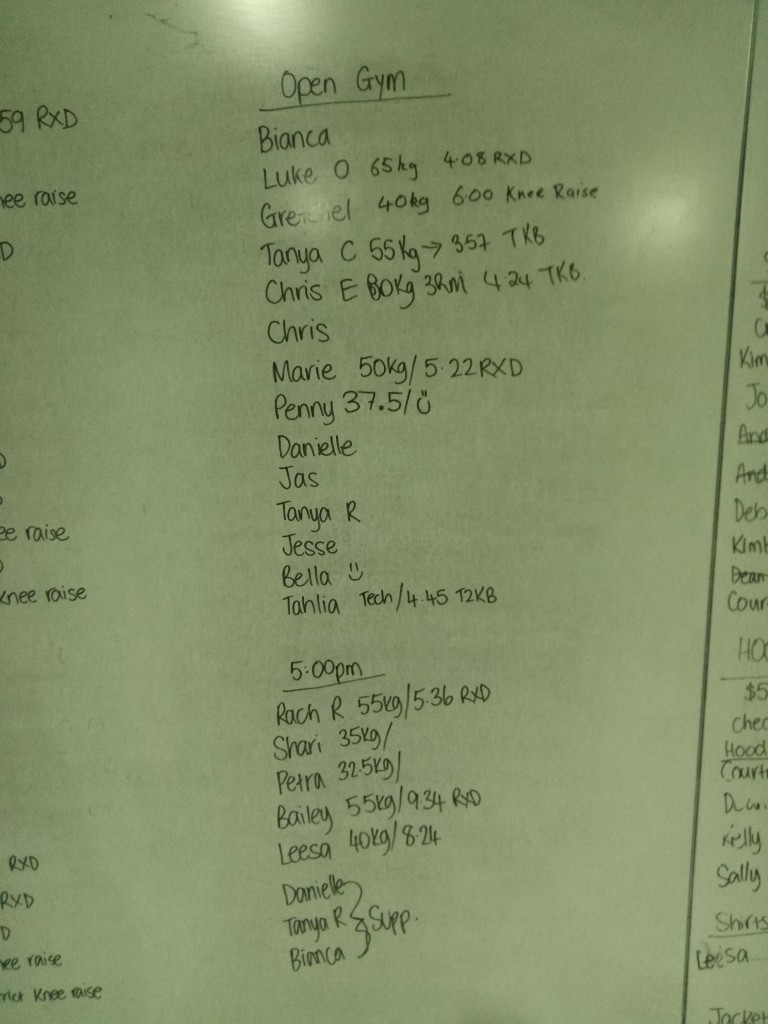 Open Gym
Bianca
Luke O 65kg 4.08 RXD
40kg 6.00 Knee Raise
Tanya C 55kg → 357 TKB
Chris E 80kg 3RM 4.24 TKB
Chris
Marie 50kg/5.22 RXD
Penny 37.5/
Danielle
Jas
Tanya R
Jesse
Bella
Tahlia Tech/4.45 T2KB
5:00pm
Rach R 55kg/5.36 RXD
Shari 35kg/
Petra 32.5kg/
Bailey 55kg/9.34 RXD
Leesa 40kg/8.24
Danielle
Tanya R
Bianca
Supp.
59 RXD
ee raise
D
D
ee raise
Knee raise
RXD
RXD
D
ee raise
rict Knee raise
$
Kim
Jo
And
And
Deb
Kimb
Dean
Cour
HOO
$5
Chec
Hood
Court
Kielly
Sally
Shirts
Leesa
Jacket